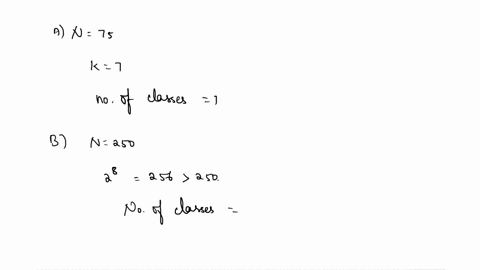 A) N = 75
K = 7
no. of classes = 7
B) N = 250
2⁸ = 256 > 250.
No. of classes =